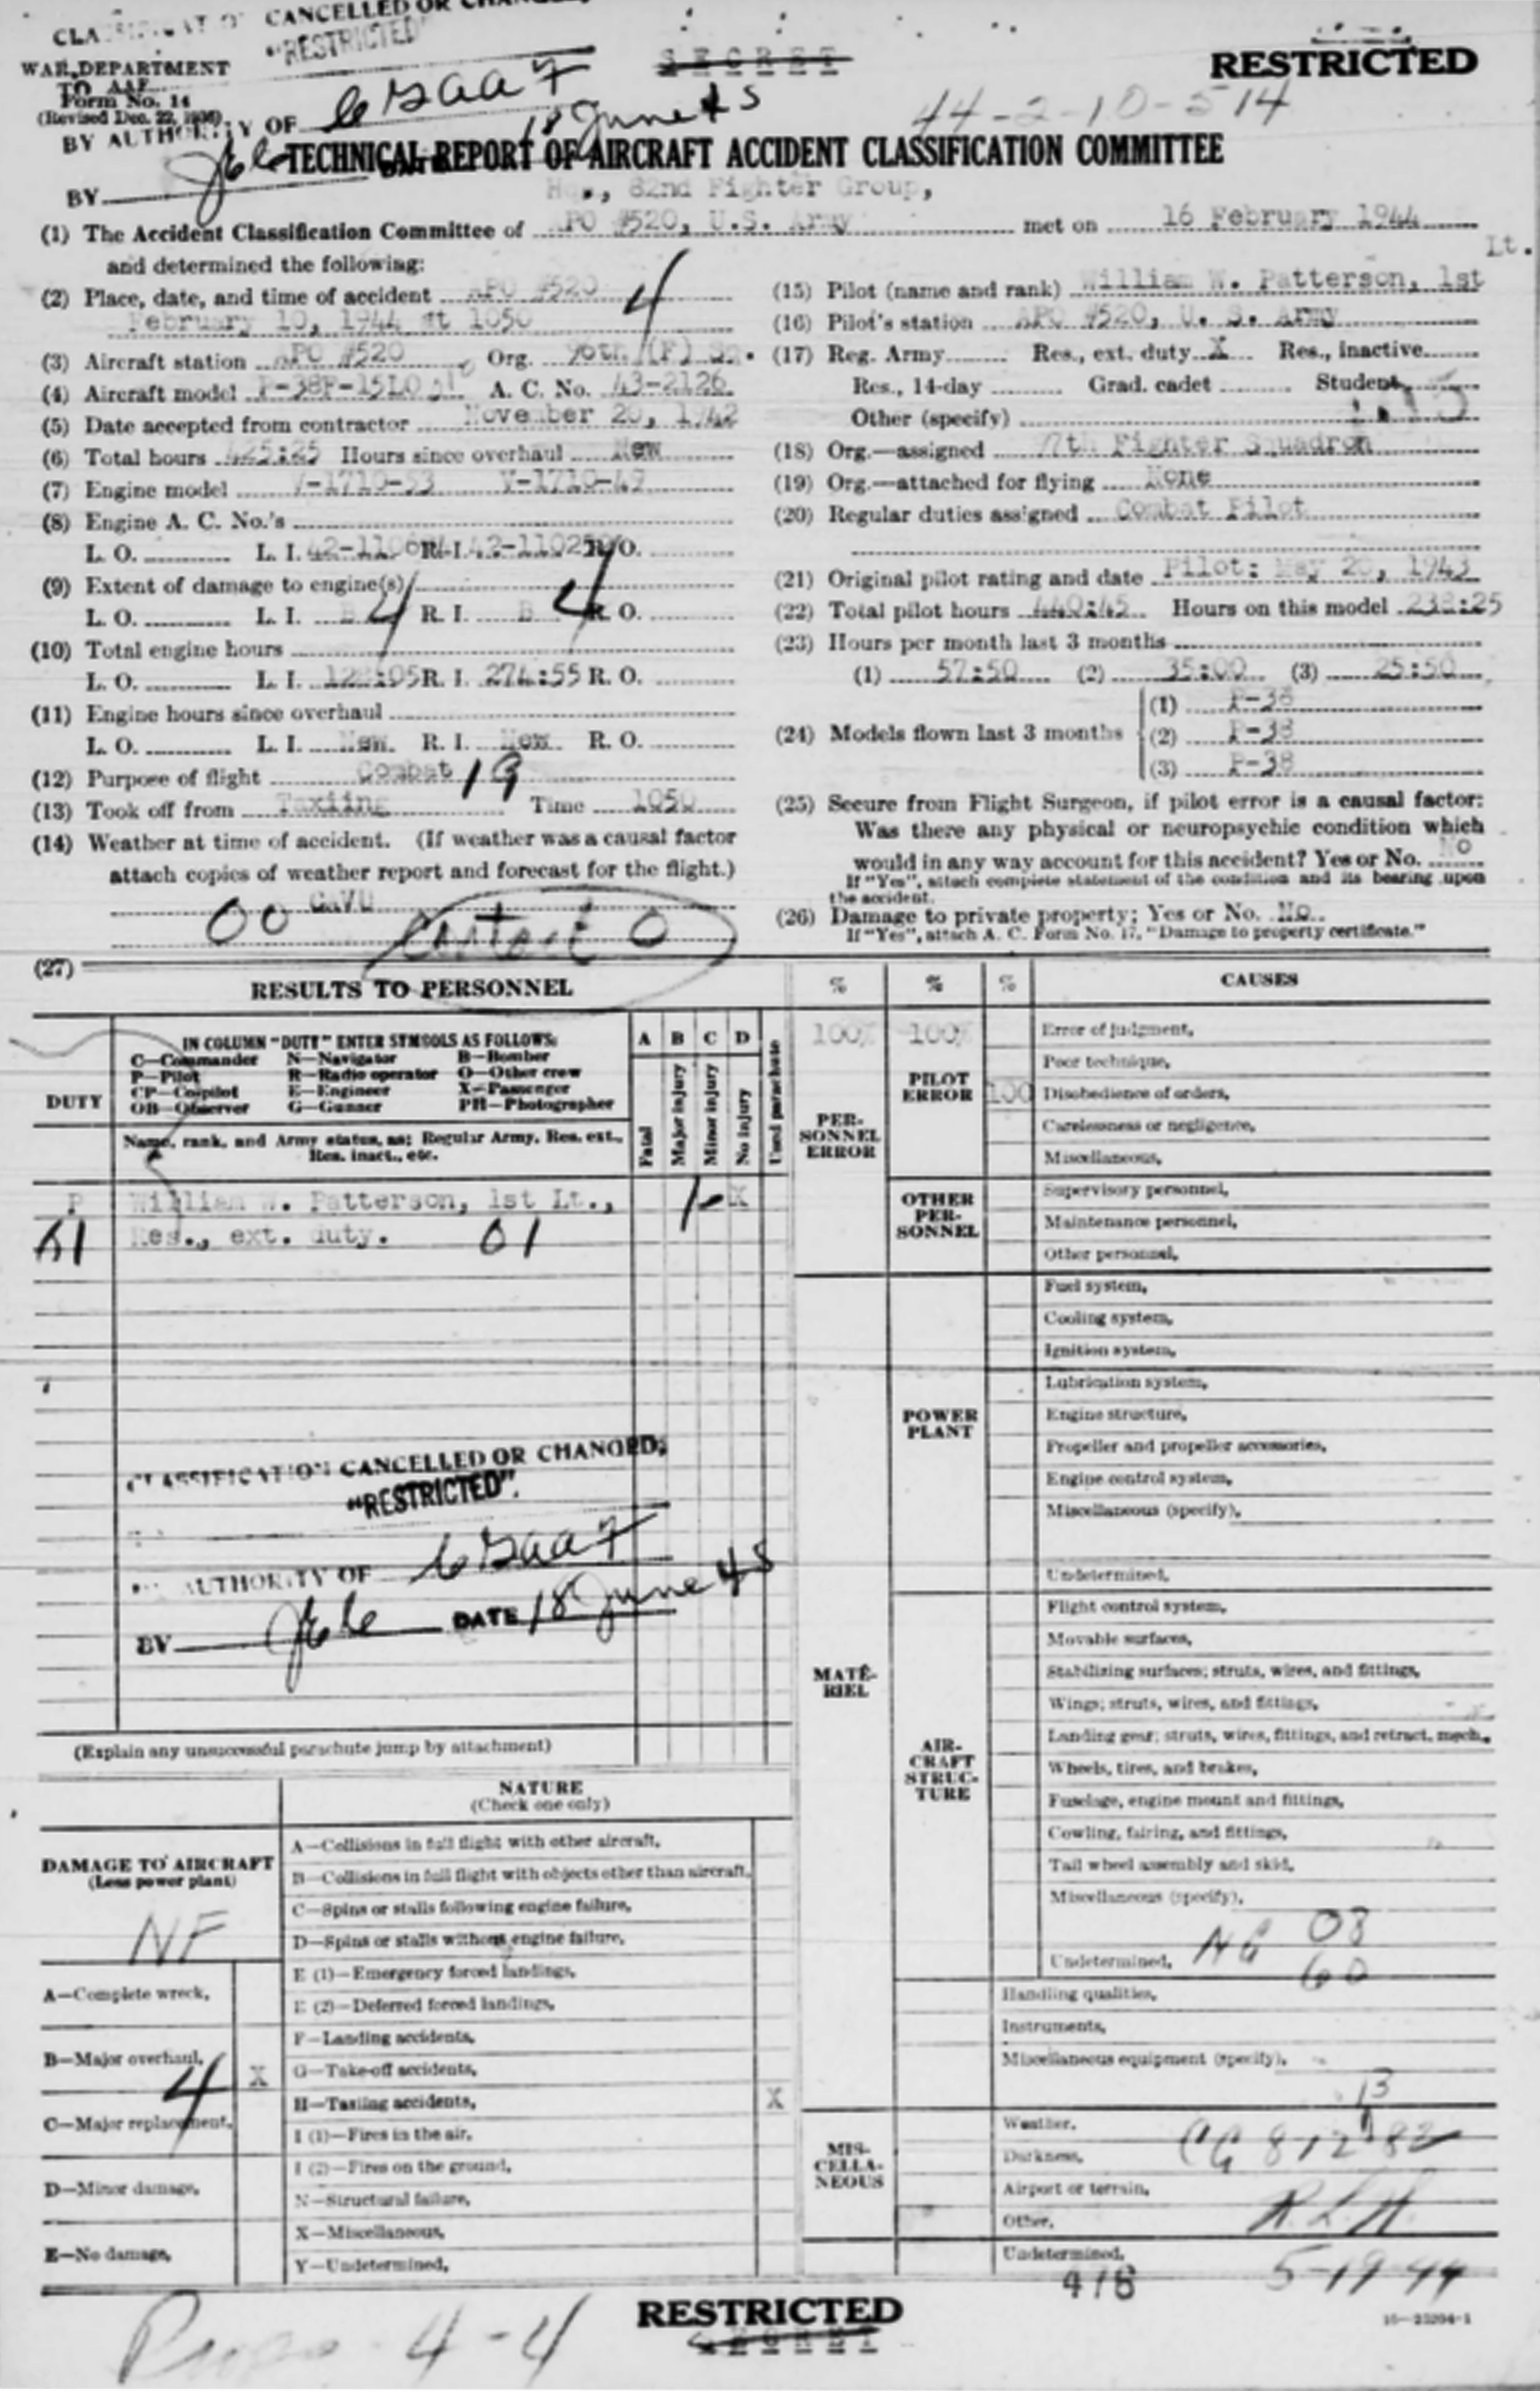 CANCELLED OR
"RESTRICTED
SECRET
RESTRICTED
WAR DEPARTMENT
TO AAF
Form No. 14
(Revised Dec. 22, )
BY AUTHORITY OF
18 June 45
44-2-10-514
TECHNICAL REPORT OF AIRCRAFT ACCIDENT CLASSIFICATION COMMITTEE
BY
Hq., 82nd Fighter Group,
(1) The Accident Classification Committee of APO #520, U.S. Army met on 16 February 1944
and determined the following:
(2) Place, date, and time of accident APO #520 4
February 10, 1944 at 1050
(3) Aircraft station APO #520 Org. 96th (F) Sq.
(4) Aircraft model P-38F-15LO A. C. No. 43-2126
(5) Date accepted from contractor November 20, 1942
(6) Total hours 425:25 Hours since overhaul New
(7) Engine model V-1710-53 V-1710-49
(8) Engine A. C. No.'s
L. O. L. I. R. I. R. O.
(9) Extent of damage to engine(s)
L. O. L. I. B 4 R. I. B 4 R. O.
(10) Total engine hours
L. O. L. I. :05 R. I. 274:55 R. O.
(11) Engine hours since overhaul
L. O. L. I. New R. I. New R. O.
(12) Purpose of flight Combat 19
(13) Took off from Taxiing Time 1050
(14) Weather at time of accident. (If weather was a causal factor
attach copies of weather report and forecast for the flight.)
CAVU
00 Contact 0
Lt.
(15) Pilot (name and rank) William W. Patterson, 1st
(16) Pilot's station APO #520, U. S. Army
(17) Reg. Army Res., ext. duty X Res., inactive
Res., 14-day Grad. cadet Student
Other (specify)
(18) Org.—assigned 97th Fighter Squadron
(19) Org.—attached for flying None
(20) Regular duties assigned Combat Pilot
(21) Original pilot rating and date Pilot: May 20, 1943
(22) Total pilot hours 440:45 Hours on this model 238:25
(23) Hours per month last 3 months
(1) 57:50 (2) 35:00 (3) 25:50
(24) Models flown last 3 months
(1) P-38
(2) P-38
(3) P-38
(25) Secure from Flight Surgeon, if pilot error is a causal factor:
Was there any physical or neuropsychic condition which
would in any way account for this accident? Yes or No. No
If "Yes", attach complete statement of the condition and its bearing upon
the accident.
(26) Damage to private property; Yes or No. No
If "Yes", attach A. C. Form No. 17, "Damage to property certificate."
(27)
RESULTS TO PERSONNEL
DUTY
IN COLUMN "DUTY" ENTER SYMBOLS AS FOLLOWS:
C—Commander N—Navigator B—Bomber
P—Pilot R—Radio operator O—Other crew
CP—Copilot E—Engineer X—Passenger
OB—Observer G—Gunner PH—Photographer
Name, rank, and Army status, as; Regular Army, Res. ext.,
Res. inact., etc.
A B C D
Fatal
Major injury
Minor injury
No injury
Used parachute
P William W. Patterson, 1st Lt., X
Res., ext. duty. 01
CLASSIFICATION CANCELLED OR CHANGED,
"RESTRICTED".
AUTHORITY OF
BY DATE 18 June 45
(Explain any unsuccessful parachute jump by attachment)
DAMAGE TO AIRCRAFT
(Less power plant)
NF
A—Complete wreck,
B—Major overhaul, X
4
C—Major replacement,
D—Minor damage,
E—No damage,
NATURE
(Check one only)
A—Collisions in full flight with other aircraft,
B—Collisions in full flight with objects other than aircraft,
C—Spins or stalls following engine failure,
D—Spins or stalls without engine failure,
E (1)—Emergency forced landings,
E (2)—Deferred forced landings,
F—Landing accidents,
G—Take-off accidents,
H—Taxiing accidents, X
I (1)—Fires in the air,
I (2)—Fires on the ground,
N—Structural failure,
X—Miscellaneous,
Y—Undetermined,
% % % CAUSES
100% 100%
PERSONNEL ERROR
PILOT ERROR
Error of judgment,
Poor technique,
100 Disobedience of orders,
Carelessness or negligence,
Miscellaneous,
OTHER PERSONNEL
Supervisory personnel,
Maintenance personnel,
Other personnel,
MATÉRIEL
POWER PLANT
Fuel system,
Cooling system,
Ignition system,
Lubrication system,
Engine structure,
Propeller and propeller accessories,
Engine control system,
Miscellaneous (specify),
Undetermined,
AIRCRAFT STRUCTURE
Flight control system,
Movable surfaces,
Stabilizing surfaces; struts, wires, and fittings,
Wings; struts, wires, and fittings,
Landing gear; struts, wires, fittings, and retract. mech.,
Wheels, tires, and brakes,
Fuselage, engine mount and fittings,
Cowling, fairing, and fittings,
Tail wheel assembly and skid,
Miscellaneous (specify),
Undetermined, NG 08
60
Handling qualities,
Instruments,
Miscellaneous equipment (specify),
13
MISCELLANEOUS
Weather,
Darkness,
Airport or terrain,
Other,
Undetermined,
RLH
416 5-19-44
RESTRICTED
SECRET
16—23204-1
4-4